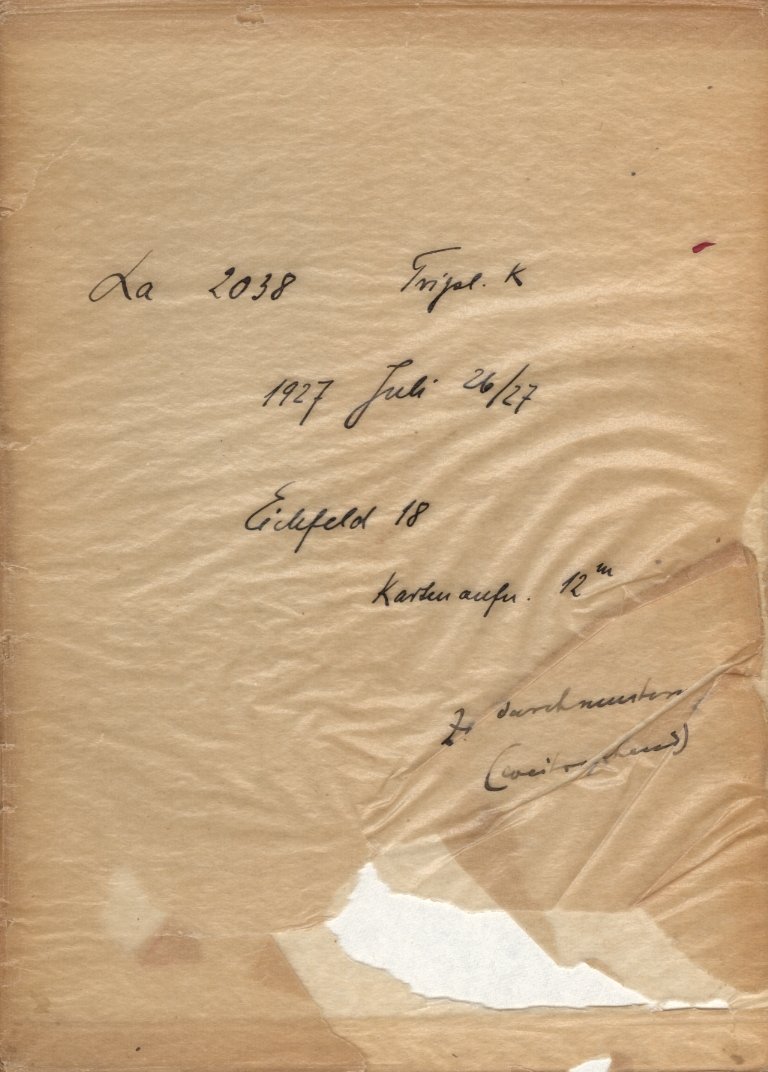 La 2038 Tripl. K
1927 Juli 26/27
Eichfeld 18
Kartenaufn. 12ᵐ
Z. durchmustern